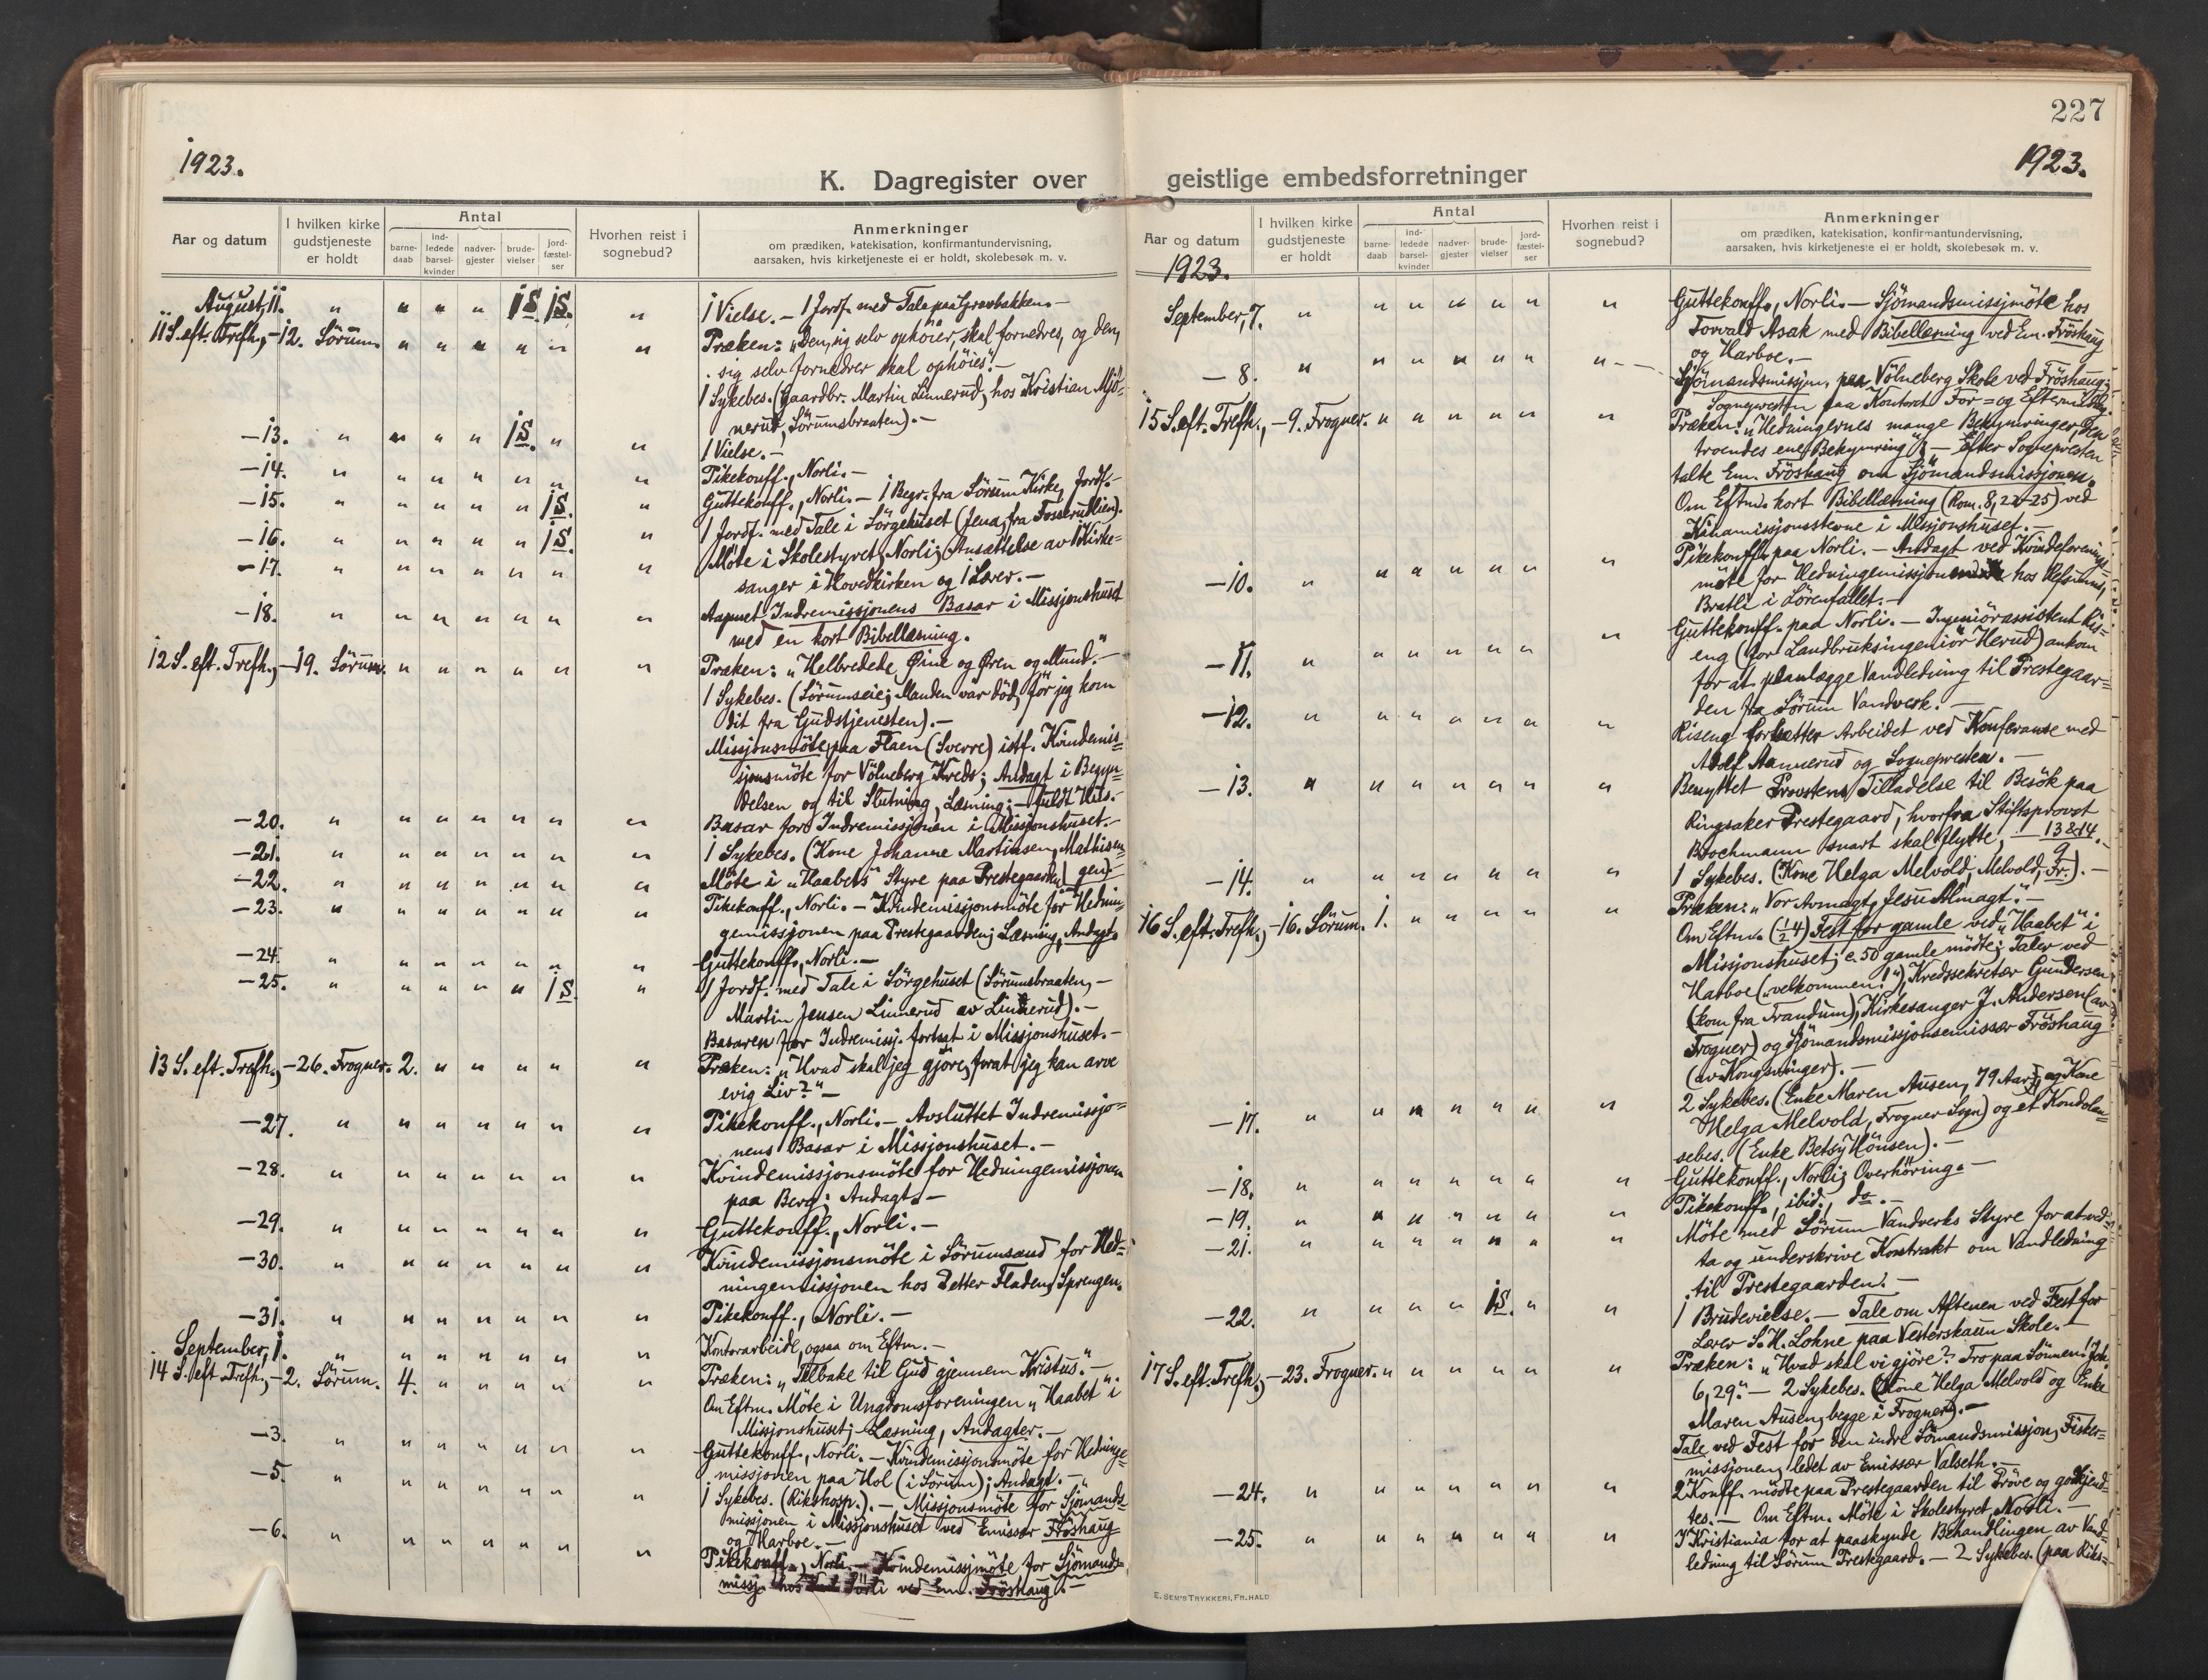 227
1923.
1923.
K. Dagregister over geistlige embedsforretninger
Aar og datum
I hvilken kirke gudstjeneste er holdt
Antal
barne-daab
ind-ledede barsel-kvinder
nadver-gjester
brude-vielser
jord-fæstel-ser
Hvorhen reist i sognebud?
Anmerkninger
om prædiken, katekisation, konfirmantundervisning,
aarsaken, hvis kirketjeneste ei er holdt, skolebesøk m. v.
August, 11. " " " " 1S. 1S. " 1 Vielse. – 1 Jordf. med Tale paa Gravbakken. –
11 S. eft. Trefh., – 12. Sörum. " " " " " " Præken: „Den, sig selv ophöier, skal fornedres, og den,
sig selv fornedrer skal ophöies". –
1 Sykebes. (Gaardbr. Martin Linnerud, hos Kristian Mjö-
nerud, Sörumsbraaten). –
– 13. " " " " 1S. " " 1 Vielse. –
– 14. " " " " " " " Pikekonff., Norli. –
– 15. " " " " " 1S. " Guttekonff., Norli. – 1 Begr. fra Sörum Kirke, Jordf. –
– 16. " " " " " 1S. " 1 Jordf. med Tale i Sörgehuset (Jena, fra Fosserudlien).
– 17. " " " " " " " Möte i Skolestyret, Norli; Ansættelse av 1 Kirke-
sanger i Hovedkirken og 1 Lærer. –
– 18. " " " " " " " Aapnet Indremissjonens Basar i Missjonshuset
med en kort Bibellæsning.
12 S. eft. Trefh., – 19. Sörum. " " " " " " Præken: „Helbredede Øine og Øren og Mund." –
1 Sykebes. (Sörumseie; Manden var död, för jeg kom
dit fra Gudstjenesten). –
Missjonsmöte paa Flaen (Sverre) istf. Kvindemis-
sjonsmöte for Völneberg Kreds; Andagt i Begyn-
delsen og til Slutning, Læsning; – fuldt Hus. –
– 20. " " " " " " " Basar for Indremissjonen i Missjonshuset. –
– 21. " " " " " " " 1 Sykebes. (Kone Johanne Martinsen, Mathisen-
– 22. " " " " " " " Möte i „Haabets" Styre paa Prestegaarden. gen).
– 23. " " " " " " " Pikekonff., Norli. – Kvindemissjonsmöte for Hednin-
gemissjonen paa Prestegaarden; Læsning, Andagt.
– 24. " " " " " " " Guttekonff., Norli. –
– 25. " " " " " 1S. " 1 Jordf. med Tale i Sörgehuset (Sörumsbraaten, –
Martin Jensen Linnerud av Linnerud). –
Basaren for Indremissj. fortsat i Missjonshuset. –
13 S. eft. Trefh., – 26. Frogner. 2. " " " " " Præken: „Hvad skal jeg gjöre, forat jeg kan arve
evig Liv?" –
– 27. " " " " " " " Pikekonff., Norli. – Avsluttet Indremissjo-
nens Basar i Missjonshuset. –
– 28. " " " " " " " Kvindemissjonsmöte for Hedningemissjonen
paa Berg; Andagt. –
– 29. " " " " " " " Guttekonff., Norli. –
– 30. " " " " " " " Kvindemissjonsmöte i Sörumsand for Hed-
ningemissjonen hos Petter Fladen, Sprengen.
– 31. " " " " " " " Pikekonff., Norli. –
September, 1. " " " " " " " Kontorarbeide, ogsaa om Eftm. –
14 S. eft. Trefh., – 2. Sörum. 4. " " " " " Præken: „Tilbake til Gud gjennem Kristus". –
Om Eftm. Möte i Ungdomsforeningen „Haabet" i
Missjonshuset; – Læsning, Andagter. –
– 3. " " " " " " " Guttekonff., Norli. – Kvindemissjonsmöte for Hedninge-
missjonen paa Hol (i Sörum); Andagt. –
– 5. " " " " " " " 1 Sykebes. (Rikshosp.). – Missjonsmöte for Sjömands-
missjonen i Missjonshuset ved Emissær Fröshaug
og Harboe. –
– 6. " " " " " " " Pikekonff., Norli. – Kvindemissjmöte for Sjömands-
missj. hos Norli ved Em. Fröshaug. –
Aar og datum
I hvilken kirke gudstjeneste er holdt
Antal
barne-daab
ind-ledede barsel-kvinder
nadver-gjester
brude-vielser
jord-fæstel-ser
Hvorhen reist i sognebud?
Anmerkninger
om prædiken, katekisation, konfirmantundervisning,
aarsaken, hvis kirketjeneste ei er holdt, skolebesøk m. v.
1923.
September, 7. " " " " " " " Guttekonff., Norli. – Sjömandsmissjmöte hos
Torvald Asak med Bibellæsning ved Em. Fröshaug
og Harboe. –
– 8. " " " " " " " – Sjömandsmissjon, paa Völneberg Skole ved Fröshaug;
Sognepresten paa Kontoret For= og Eftermiddag.
15 S. eft. Trefh., – 9. Frogner. " " " " " " Præken: „Hedningernes mange Bekymringer, den
troendes ene Bekymring". – Efter Sognepresten
talte Em. Fröshaug om Sjömandsmissjonen.
Om Eftm. kort Bibellæsning (Rom. 8, 22-25) ved
Kinamissjonsstevne i Missjonshuset. –
– 10. " " " " " " " Pikekonff. paa Norli. – Andagt ved Kvindeforenings-
möte for Hedningemissjonen hos
Bratli i Lörenfallet. –
– 11. " " " " " " " Guttekonff. paa Norli. – Ingeniörassistent Ris-
eng (for Landbruksingeniör Herud) ankom
for at planlægge Vandledning til Prestegaar-
den fra Sörum Vandverk. –
– 12. " " " " " " " Riseng fortsætter Arbeidet ved Konferanse med
Adolf Aamerud og Sognepresten. –
– 13. " " " " " " " Benyttet Provstens Tilladelse til Besök paa
Ringsaker Prestegaard, hvorfra Stiftsprovst
Brochmann snart skal flytte, – 13 & 14/9. –
– 14. " " " " " " " 1 Sykebes. (Kone Helga Melvold, Melvold, Fr.). –
16 S. eft. Trefh., – 16. Sörum. 1. " " " " " Præken: „Vor Avmagt, Jesu Almagt". –
Om Eftm. (½4) Fest for gamle ved „Haabet" i
Missjonshuset; c. 50 gamle mödte; Taler ved
Harboe („velkommen!"), Kredssekretær Gundersen
(kom fra Trandum), Kirkesanger J. Andersen (av
Frogner) og Sjömandsmissjonsemissær Fröshaug
(av Kongsvinger). –
– 17. " " " " " " " 2 Sykebes. (Enke Maren Ausen, 79 Aar, og Kone
Helga Melvold, Frogner Sogn) og et Kondolan-
sebes. (Enke Betsy Hönsen). –
– 18. " " " " " " " Guttekonff., Norli; Overhöring. –
– 19. " " " " " " " Pikekonff., ibid., do. –
– 21. " " " " " " " Möte med Sörum Vandverks Styre for at ved-
ta og underskrive Kontrakt om Vandledning
til Prestegaarden. –
– 22. " " " " 1S. " " 1 Brudevielse. – Tale om Aftenen ved Fest for
Lærer S. H. Lohne paa Vesterskaun Skole. –
17 S. eft. Trefh., – 23. Frogner. " " " " " " Præken: „Hvad skal vi gjöre? Tro paa Sönnen! Joh.
6, 29." – 2 Sykebes. (Kone Helga Melvold og Enke
Maren Ausen, begge i Frogner). –
Tale ved Fest for den indre Sömandsmissjon, Fisker-
missjonen, ledet av Emissær Valseth. –
– 24. " " " " " " " 2 Konff. mödte paa Prestegaarden til Pröve og godkjend-
tes. – Om Eftm. Möte i Skolestyret, Norli. –
– 25. " " " " " " " I Kristiania for at paaskynde Behandlingen av Vand-
ledning til Sörum Prestegaard. – 2 Sykebes. (paa Riks-
E. SEM'S TRYKKERI, FR.HALD